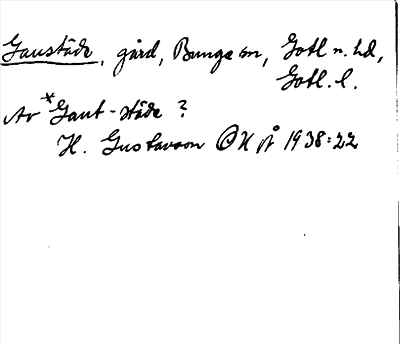 Gaustäde, gård, Bunge sn, Gotl n. hd,
Gotl. l.
Av *Gaut-städe ?
H. Gustavson OH på 1938:22